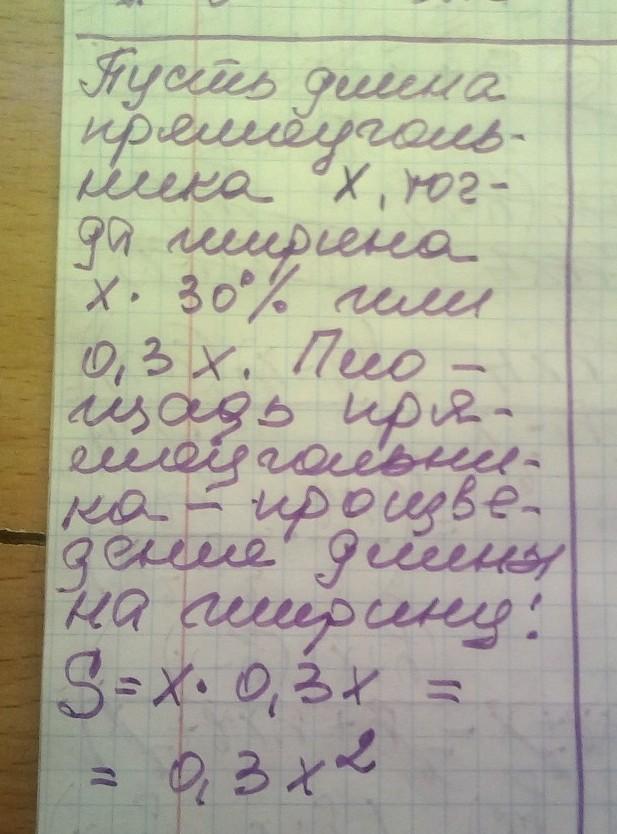 Пусть длина
прямоуголь-
ника х, тог-
да ширина
х· 30% или
0,3х. Пло-
щадь пря-
моугольни-
ка – произве-
дение длины
на ширину:
S = х· 0,3х =
= 0,3х²